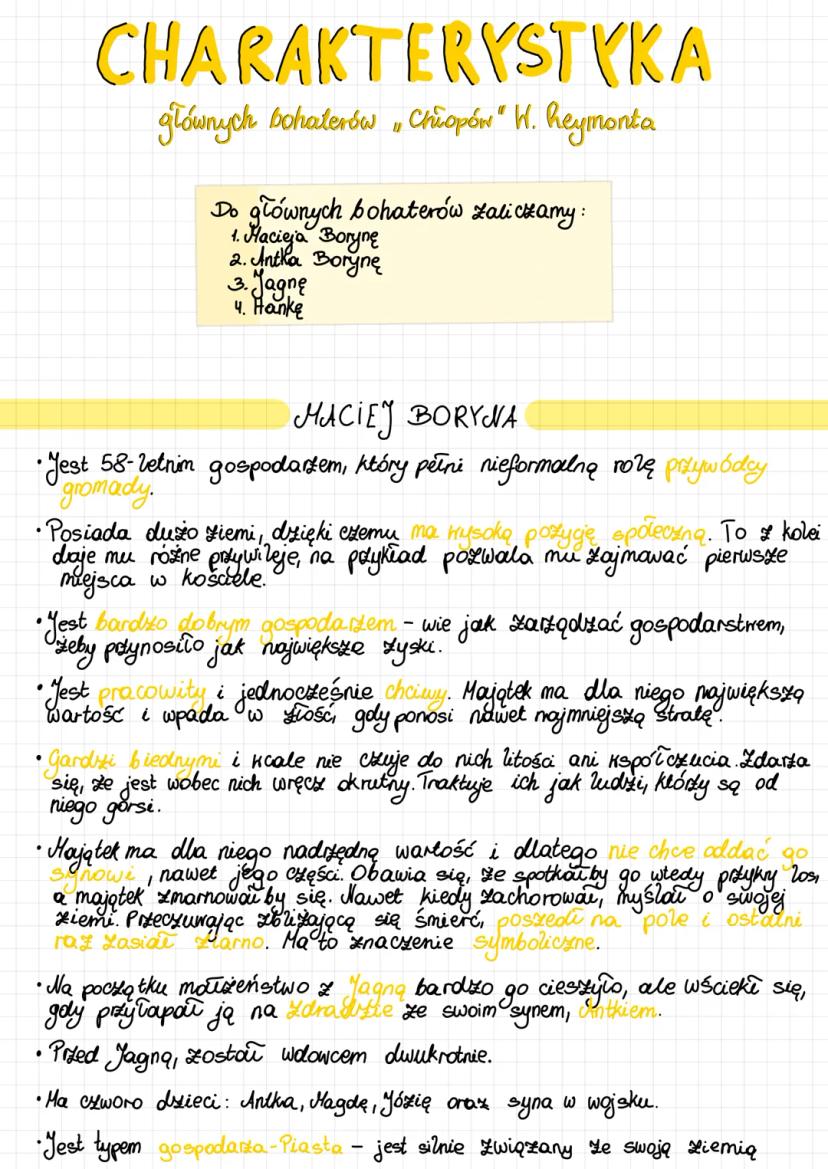 CHARAKTERYSTYKA
głównych bohaterów „Chłopów" W. Reymonta
Do głównych bohaterów zaliczamy:
1. Macieja Borynę
2. Antka Borynę
3. Jagnę
4. Hankę
MACIEJ BORYNA
• Jest 58-letnim gospodarzem, który pełni nieformalną rolę przywódcy
gromady.
• Posiada dużo ziemi, dzięki czemu ma wysoką pozycję społeczną. To z kolei
daje mu różne przywileje, na przykład pozwala mu zajmować pierwsze
miejsca w kościele.
• Jest bardzo dobrym gospodarzem – wie jak zarządzać gospodarstwem,
żeby przynosiło jak największe zyski.
• Jest pracowity i jednocześnie chciwy. Majątek ma dla niego największą
wartość i wpada w złość, gdy ponosi nawet najmniejszą stratę.
• Gardzi biednymi i wcale nie czuje do nich litości ani współczucia. Zdarza
się, że jest wobec nich wręcz okrutny. Traktuje ich jak ludzi, którzy są od
niego gorsi.
• Majątek ma dla niego nadrzędną wartość i dlatego nie chce oddać go
synowi, nawet jego części. Obawia się, że spotkałby go wtedy przykry los,
a majątek zmarnowałby się. Nawet kiedy zachorował, myślał o swojej
ziemi. Przeczuwając zbliżającą się śmierć, poszedł na pole i ostatni
raz zasiał ziarno. Ma to znaczenie symboliczne.
• Na początku małżeństwo z Jagną bardzo go cieszyło, ale wściekł się,
gdy przyłapał ją na zdradzie ze swoim synem, Antkiem.
• Przed Jagną, został wdowcem dwukrotnie.
• Ma czworo dzieci: Antka, Magdę, Józię oraz syna w wojsku.
• Jest typem gospodarza-Piasta – jest silnie związany ze swoją ziemią